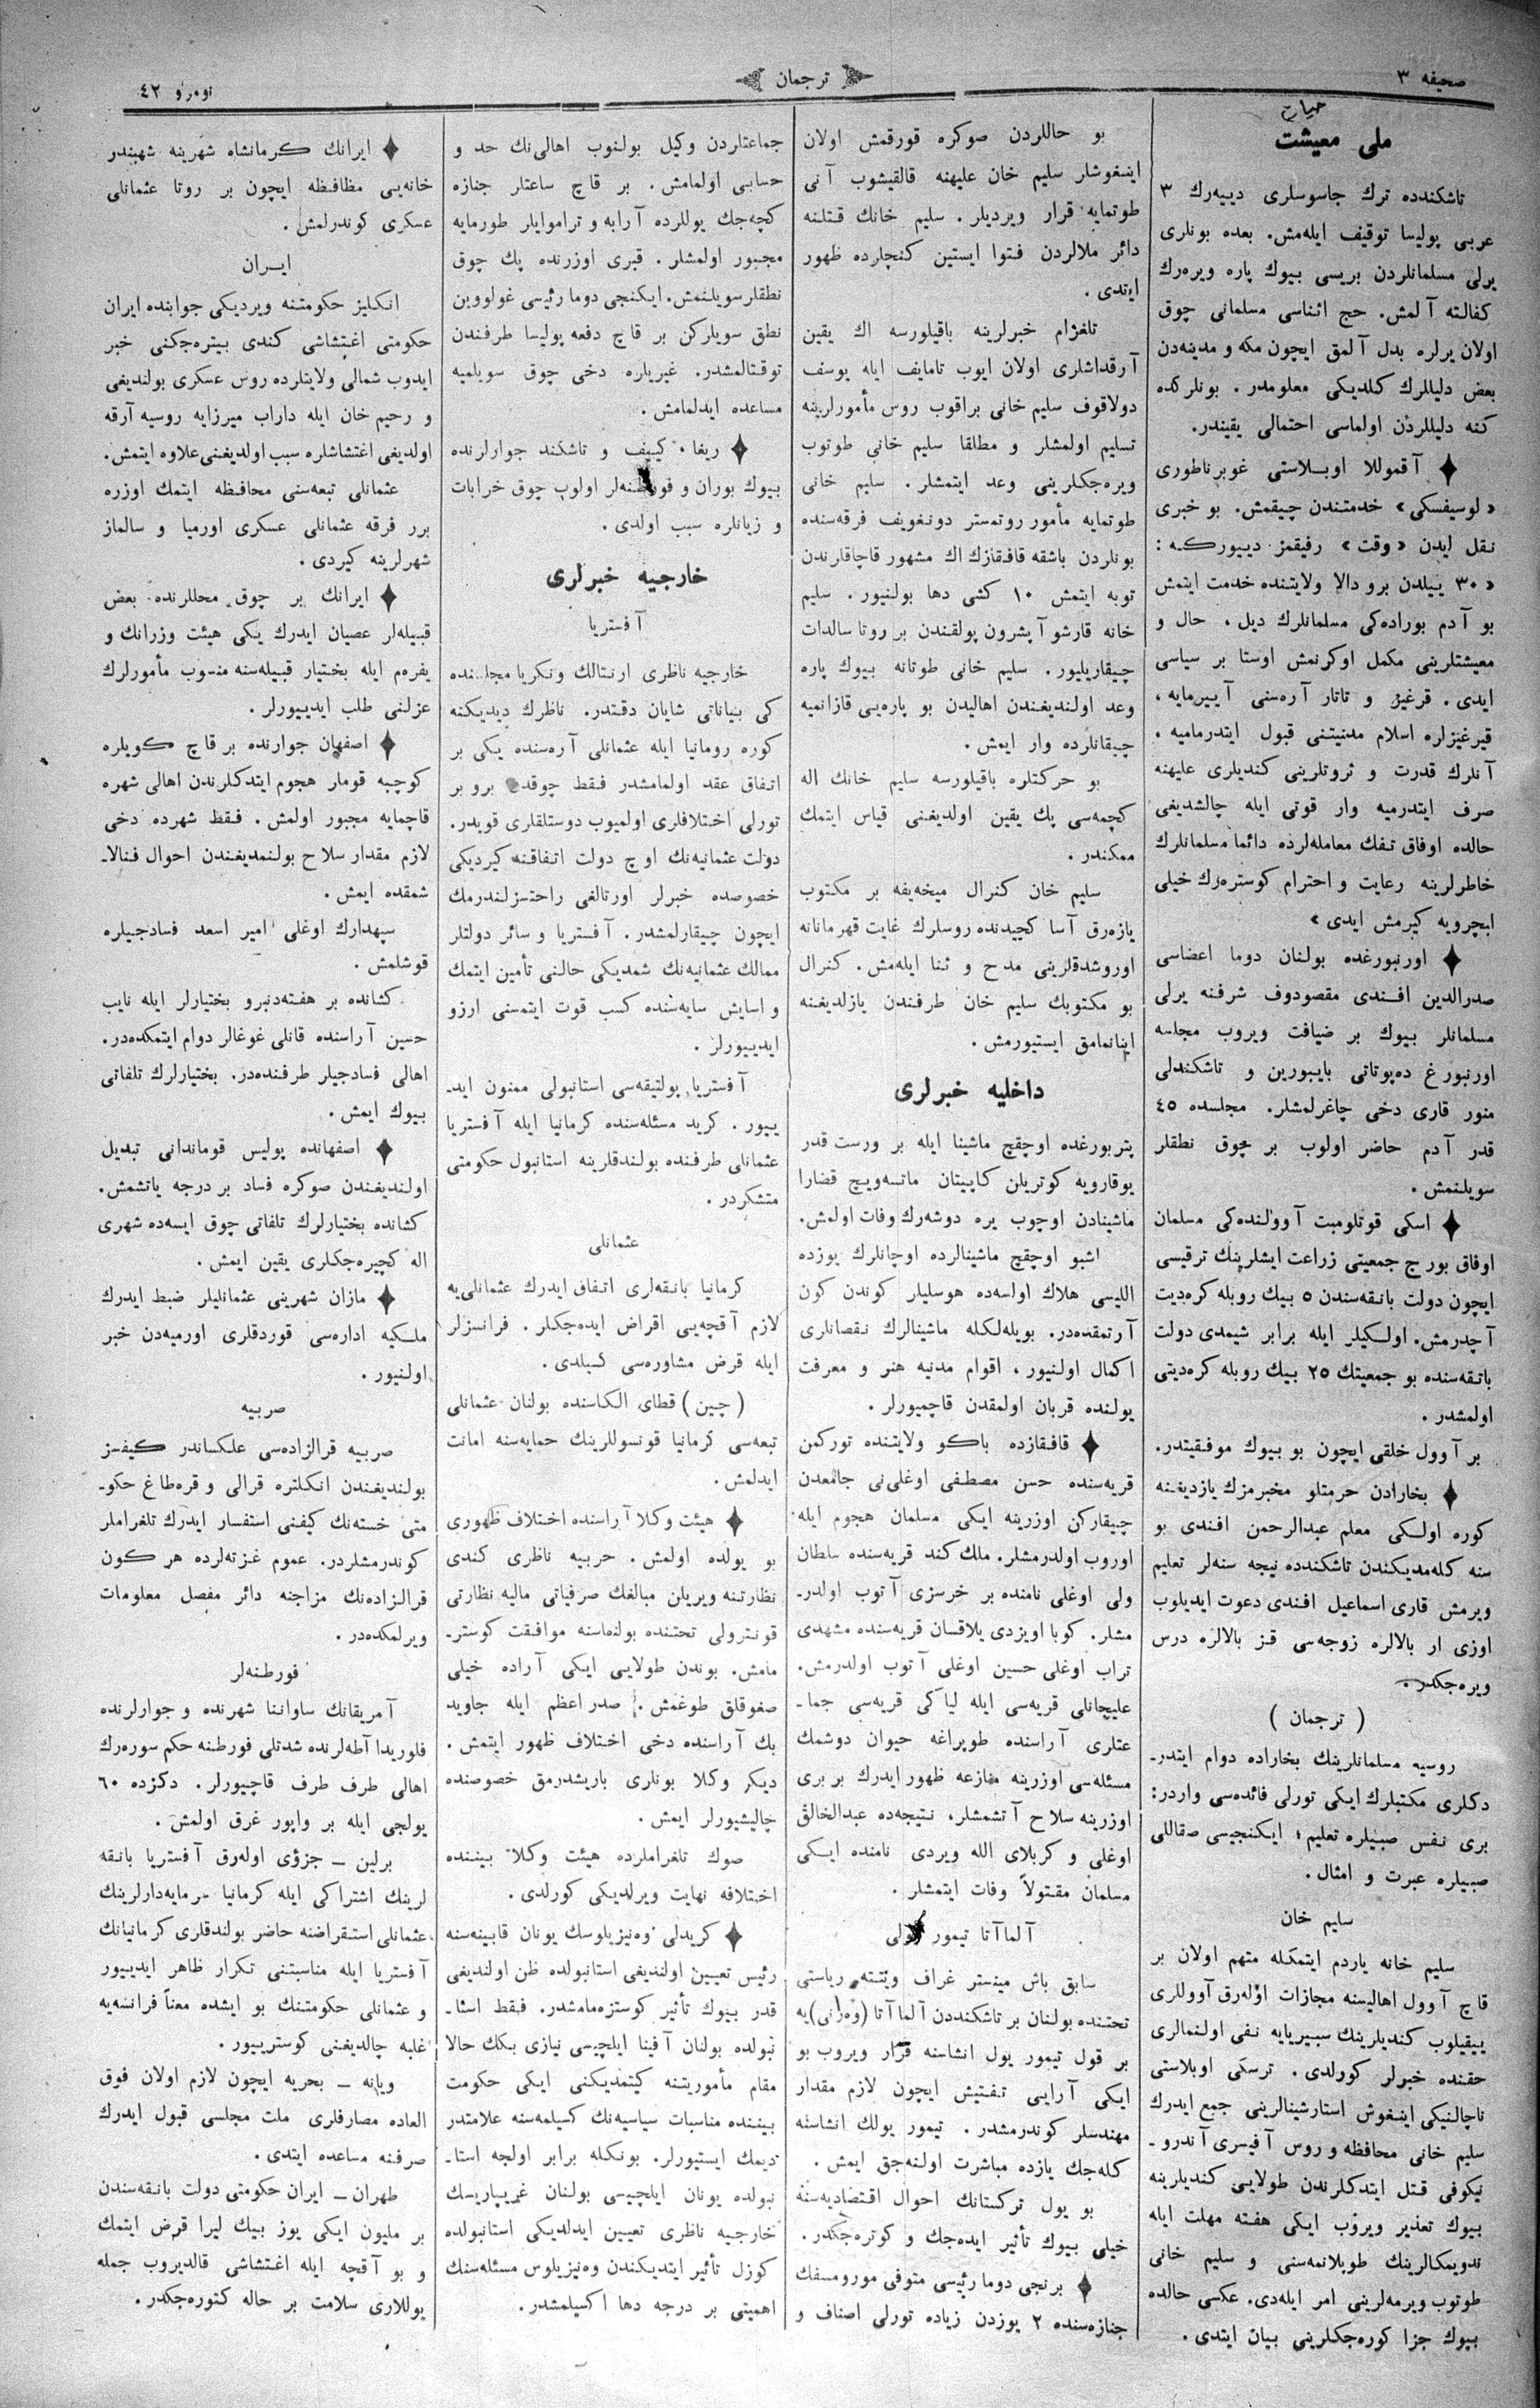 صحیفه ٣
ترجمان
نومرو ٤٢
حیات
ملی معیشت
تاشكندده ترك جاسوسلری دییه‌رك ٣
عربی پولیسا توقیف ایله‌مش. بعده بونلری
یرلی مسلمانلردن بریسی بیوك پاره ویره‌رك
كفالته آلمش. حج اثناسی مسلمانی چوق
اولان یرلره بدل آلمق ایچون مكه و مدینه‌دن
بعض دلیللرك كلدیكی معلومدر. بونلرڭده
كنه دلیللردن اولماسی احتمالی یقیندر.
آقموللا اوبلاستی غوبرناطوری
«لوسیفسكی» خدمتندن چیقمش. بو خبری
نقل ایدن «وقت» رفیقمز دییوركه:
«٣٠ ییلدن برو دالا ولایتنده خدمت ایتمش
بو آدم بوراده‌كی مسلمانلرك دیل، حال و
معیشتلرینی مكمل اوكرنمش اوستا بر سیاسی
ایدی. قرغیز و تاتار آره‌سنی آییرمایه،
قیرغیزلره اسلام مدنیتنی قبول ایتدرمامیه،
آنلرك قدرت و ثروتلرینی كندیلری علیهنه
صرف ایتدرمیه وار قوتی ایله چالشدیغی
حالده اوفاق تفك معامله‌لرده دائما مسلمانلرك
خاطرلرینه رعایت و احترام كوستره‌رك خیلی
ایچرویه كیرمش ایدی»
اورنبورغده بولنان دوما اعضاسی
صدرالدین افندی مقصودوف شرفنه یرلی
مسلمانلر بیوك بر ضیافت ویروب مجلسه
اورنبورغ ده‌پوتاتی بایبورین و تاشكندلی
منور قاری دخی چاغرلمشلر. مجلسده ٤٥
قدر آدم حاضر اولوب بر چوق نطقلر
سویلنمش.
اسكی قوتلومبت آوولنده‌كی مسلمان
اوفاق بورج جمعیتی زراعت ایشلرینك ترقیسی
ایچون دولت بانقه‌سندن ٥ بیك روبله كره‌دیت
آچدرمش. اولكیلر ایله برابر شیمدی دولت
بانقه‌سنده بو جمعیتك ٢٥ بیك روبله كره‌دیتی
اولمشدر.
بر آوول خلقی ایچون بو بیوك موفقیتدر.
بخارادن حرمتلو مخبرمزك یازدیغنه
كوره اولكی معلم عبدالرحمن افندی بو
سنه كله‌مدیكندن تاشكندده نیچه سنه‌لر تعلیم
ویرمش قاری اسماعیل افندی دعوت ایدیلوب
اوزی ار بالالره زوجه‌سی قز بالالره درس
ویره‌جكدر.
(ترجمان)
روسیه مسلمانلرینك بخاراده دوام ایتدر-
دكلری مكتبلرك ایكی تورلی فائده‌سی واردر:
بری نفس صبیلره تعلیم؛ ایكنجیسی صقاللی
صبیلره عبرت و امثال.
سلیم خان
سلیم خانه یاردم ایتمكله متهم اولان بر
قاچ آوول اهالیسنه مجازات اوله‌رق آووللری
ییقیلوب كندیلرینك سیبیریایه نفی اولنمالری
حقنده خبرلر كورلدی. ترسكی اوبلاستی
ناچالنیكی اینغوش استارشینالرینی جمع ایدرك
سلیم خانی محافظه و روس آفیسری آندرو-
نیكوفی قتل ایتدكلرندن طولایی كندیلرینه
بیوك تعذیر ویروب ایكی هفته مهلت ایله
ندویمكالرینك طوپلانمه‌سنی و سلیم خانی
طوتوب ویرمه‌لرینی امر ایله‌دی. عكسی حالده
بیوك جزا كوره‌جكلرینی بیان ایتدی.
بو حاللردن صوكره قورقمش اولان
اینغوشلر سلیم خان علیهنه قالقیشوب آنی
طوتمایه قرار ویردیلر. سلیم خانك قتلنه
دائر ملالردن فتوا ایستین كنجلرده ظهور
ایتدی.
تلغرام خبرلرینه باقیلورسه اك یقین
آرقداشلری اولان ایوب تامایف ایله یوسف
دولاقوف سلیم خانی براقوب روس مأمورلرینه
تسلیم اولمشلر و مطلقا سلیم خانی طوتوب
ویره‌جكلرینی وعد ایتمشلر. سلیم خانی
طوتمایه مأمور روتمستر دونغویف فرقه‌سنده
بونلردن باشقه قافقازك اك مشهور قاچاقلرندن
توبه ایتمش ١٠ كشی دها بولنیور. سلیم
خانه قارشو آپشرون پولقندن بر روتا سالدات
چیقاریلیور. سلیم خانی طوتانه بیوك پاره
وعد اولندیغندن اهالیدن بو پاره‌یی قازانمیه
چیقانلرده وار ایمش.
بو حركتلره باقیلورسه سلیم خانك اله
كچمه‌سی پك یقین اولدیغنی قیاس ایتمك
ممكندر.
سلیم خان كنرال میخه‌یفه بر مكتوب
یازه‌رق آسا كچیدنده روسلرك غایت قهرمانانه
اوروشدقلرینی مدح و ثنا ایله‌مش. كنرال
بو مكتوبك سلیم خان طرفندن یازلدیغنه
اینانمامق ایستیورمش.
داخلیه خبرلری
پتربورغده اوچقچ ماشینا ایله بر ورست قدر
یوقارویه كوتریلن كاپیتان ماتسه‌ویچ قضارا
ماشینادن اوچوب یره دوشه‌رك وفات اولمش.
اشبو اوچقچ ماشینالرده اوچانلرك یوزده
اللیسی هلاك اولسه‌ده هوسلیلر كوندن كون
آرتمقده‌در. بویله‌لكله ماشینالرك نقصانلری
اكمال اولنیور، اقوام مدنیه هنر و معرفت
یولنده قربان اولمقدن قاچمیورلر.
قافقازده باكو ولایتنده توركمن
قریه‌سنده حسن مصطفی اوغلی‌نی جامعدن
چیقاركن اوزرینه ایكی مسلمان هجوم ایله
اوروب اولدرمشلر. ملك كند قریه‌سنده سلطان
ولی اوغلی نامنده بر خرسزی آتوب اولدر-
مشلر. كوبا اویزدی یلاقسان قریه‌سنده مشهدی
تراب اوغلی حسین اوغلی آتوب اولدرمش.
علیچانلی قریه‌سی ایله لیاكی قریه‌سی جما-
عتلری آراسنده طوپراغه حیوان دوشمك
مسئله‌سی اوزرینه منازعه ظهور ایدرك بر بری
اوزرینه سلاح آتشمشلر، نتیجه‌ده عبدالخالق
اوغلی و كربلای الله ویردی نامنده ایكی
مسلمان مقتولاً وفات ایتمشلر.
آلماآتا تیمور یولی
سابق باش مینستر غراف ویتته ریاستی
تحتنده بولنان بر تاشكنددن آلماآتا (وه‌رنی)یه
بر قول تیمور یول انشاسنه قرار ویروب بو
ایكی آرایی تفتیش ایچون لازم مقدار
مهندسلر كوندرمشدر. تیمور یولك انشاسنه
كله‌جك یازده مباشرت اولنه‌جق ایمش.
بو یول تركستانك احوال اقتصادیه‌سنه
خیلی بیوك تأثیر ایده‌جك و كوتره‌جكدر.
برنجی دوما رئیسی متوفی مورومسفك
جنازه‌سنده ٢ یوزدن زیاده تورلی اصناف و
جماعتلردن وكیل بولنوب اهالی‌نك حد و
حسابی اولمامش. بر قاچ ساعتلر جنازه
كچه‌جك یوللرده آرابه و تراموایلر طورمایه
مجبور اولمشلر. قبری اوزرنده پك چوق
نطقلر سویلنمش. ایكنجی دوما رئیسی غولووین
نطق سویلركن بر قاچ دفعه پولیسا طرفندن
توقتالمشدر. غیریلره دخی چوق سویلمیه
مساعده ایدلمامش.
ریغا، كییف و تاشكند جوارلرنده
بیوك بوران و فورطنه‌لر اولوب چوق خرابات
و زیانلره سبب اولدی.
خارجیه خبرلری
آفستریا
خارجیه ناظری ارنتالك ونكریا مجلسنده
كی بیاناتی شایان دقتدر. ناظرك دیدیكنه
كوره رومانیا ایله عثمانلی آره‌سنده یكی بر
اتفاق عقد اولمامشدر فقط چوقدن برو بر
تورلی اختلافلری اولمیوب دوستلقلری قویدر.
دولت عثمانیه‌نك اوچ دولت اتفاقنه كیردیكی
خصوصده خبرلر اورتالغی راحتسزلندرمك
ایچون چیقارلمشدر. آفستریا و سائر دولتلر
ممالك عثمانیه‌نك شمدیكی حالنی تأمین ایتمك
و اسایش سایه‌سنده كسب قوت ایتمسنی ارزو
ایدییورلر.
آفستریا پولتیقه‌سی استانبولی ممنون اید-
ییور. كرید مسئله‌سنده كرمانیا ایله آفستریا
عثمانلی طرفنده بولندقلرینه استانبول حكومتی
متشكردر.
عثمانلی
كرمانیا بانقه‌لری اتفاق ایدرك عثمانلی‌یه
لازم آقچه‌یی اقراض ایده‌جكلر. فرانسزلر
ایله قرض مشاوره‌سی كسیلدی.
(چین) قطای الكاسنده بولنان عثمانلی
تبعه‌سی كرمانیا قونسوللرینك حمایه‌سنه امانت
ایدلمش.
هیئت وكلا آراسنده اختلاف ظهوری
بو یولده اولمش. حربیه ناظری كندی
نظارتنه ویریلن مبالغك صرفیاتی مالیه نظارتی
قونترولی تحتنده بولنماسنه موافقت كوستر-
مامش. بوندن طولایی ایكی آراده خیلی
صغوقلق طوغمش. صدر اعظم ایله جاوید
بك آراسنده دخی اختلاف ظهور ایتمش.
دیكر وكلا بونلری باریشدرمق خصوصنده
چالیشیورلر ایمش.
صوك تلغراملرده هیئت وكلا بیننده
اختلافه نهایت ویرلدیكی كورلدی.
كریدلی وه‌نیزیلوسك یونان قابینه‌سنه
رئیس تعیین اولندیغی استانبولده ظن اولندیغی
قدر بیوك تأثیر كوستره‌مامشدر. فقط استا-
نبولده بولنان آفینا ایلچیسی نیازی بكك حالا
مقام مأموریتنه كیتمدیكنی ایكی حكومت
بیننده مناسبات سیاسیه‌نك كسیلمه‌سنه علامتدر
دیمك ایستیورلر. بونكله برابر اولجه استا-
نبولده یونان ایلچیسی بولنان غریپاریسك
خارجیه ناظری تعیین ایدلدیكی استانبولده
كوزل تأثیر ایتدیكندن وه‌نیزیلوس مسئله‌سنك
اهمیتی بر درجه دها اكسیلمشدر.
ایرانك كرمانشاه شهرینه شهبندر
خانه‌یی مظافظه ایچون بر روتا عثمانلی
عسكری كوندرلمش.
ایران
انكلیز حكومتنه ویردیكی جوابنده ایران
حكومتی اغتشاشی كندی بیتره‌جكنی خبر
ایدوب شمالی ولایتلرده روس عسكری بولندیغی
و رحیم خان ایله داراب میرزایه روسیه آرقه
اولدیغی اغتشاشلره سبب اولدیغنی علاوه ایتمش.
عثمانلی تبعه‌سنی محافظه ایتمك اوزره
برر فرقه عثمانلی عسكری اورمیا و سالماز
شهرلرینه كیردی.
ایرانك بر چوق محللرنده بعض
قبیله‌لر عصیان ایدرك یكی هیئت وزرانك و
یفره‌م ایله بختیار قبیله‌سنه منسوب مأمورلرك
عزلنی طلب ایدییورلر.
اصفهان جوارنده بر قاچ كویلره
كوچبه قومار هجوم ایتدكلرندن اهالی شهره
قاچمایه مجبور اولمش. فقط شهرده دخی
لازم مقدار سلاح بولنمدیغندن احوال فنالا-
شمقده ایمش.
سپهدارك اوغلی امیر اسعد فسادجیلره
قوشلمش.
كشانده بر هفته‌دنبرو بختیارلر ایله نایب
حسین آراسنده قانلی غوغالر دوام ایتمكده‌در.
اهالی فسادجیلر طرفنده‌در. بختیارلرك تلفاتی
بیوك ایمش.
اصفهانده پولیس قوماندانی تبدیل
اولندیغندن صوكره فساد بر درجه یاتشمش.
كشانده بختیارلرك تلفاتی چوق ایسه‌ده شهری
اله كچیره‌جكلری یقین ایمش.
مازان شهرینی عثمانلیلر ضبط ایدرك
ملكیه اداره‌سی قوردقلری اورمیه‌دن خبر
اولنیور.
صربیه
صربیه قرالزاده‌سی علكساندر كیفسز
بولندیغندن انكلتره قرالی و قره‌طاغ حكو-
متی خسته‌نك كیفنی استفسار ایدرك تلغراملر
كوندرمشلردر. عموم غزته‌لرده هر كون
قرالزاده‌نك مزاجنه دائر مفصل معلومات
ویرلمكده‌در.
فورطنه‌لر
آمریقانك ساواننا شهرنده و جوارلرنده
فلوریدا آطه‌لرنده شدتلی فورطنه حكم سوره‌رك
اهالی طرف طرف قاچیورلر. دكزده ٦٠
یولجی ایله بر واپور غرق اولمش.
برلین – جزؤی اوله‌رق آفستریا بانقه
لرینك اشتراكی ایله كرمانیا سرمایه‌دارلرینك
عثمانلی استقراضنه حاضر بولندقلری كرمانیانك
آفستریا ایله مناسبتنی تكرار ظاهر ایدییور
و عثمانلی حكومتنك بو ایشده معناً فرانسه‌یه
غلبه چالدیغنی كوستریبور.
ویانه – بحریه ایچون لازم اولان فوق
العاده مصارفلری ملت مجلسی قبول ایدرك
صرفنه مساعده ایتدی.
طهران – ایران حكومتی دولت بانقه‌سندن
بر ملیون ایكی یوز بیك لیرا قرض ایتمك
و بو آقچه ایله اغتشاشی قالدیروب جمله
یوللاری سلامت بر حاله كتوره‌جكدر.